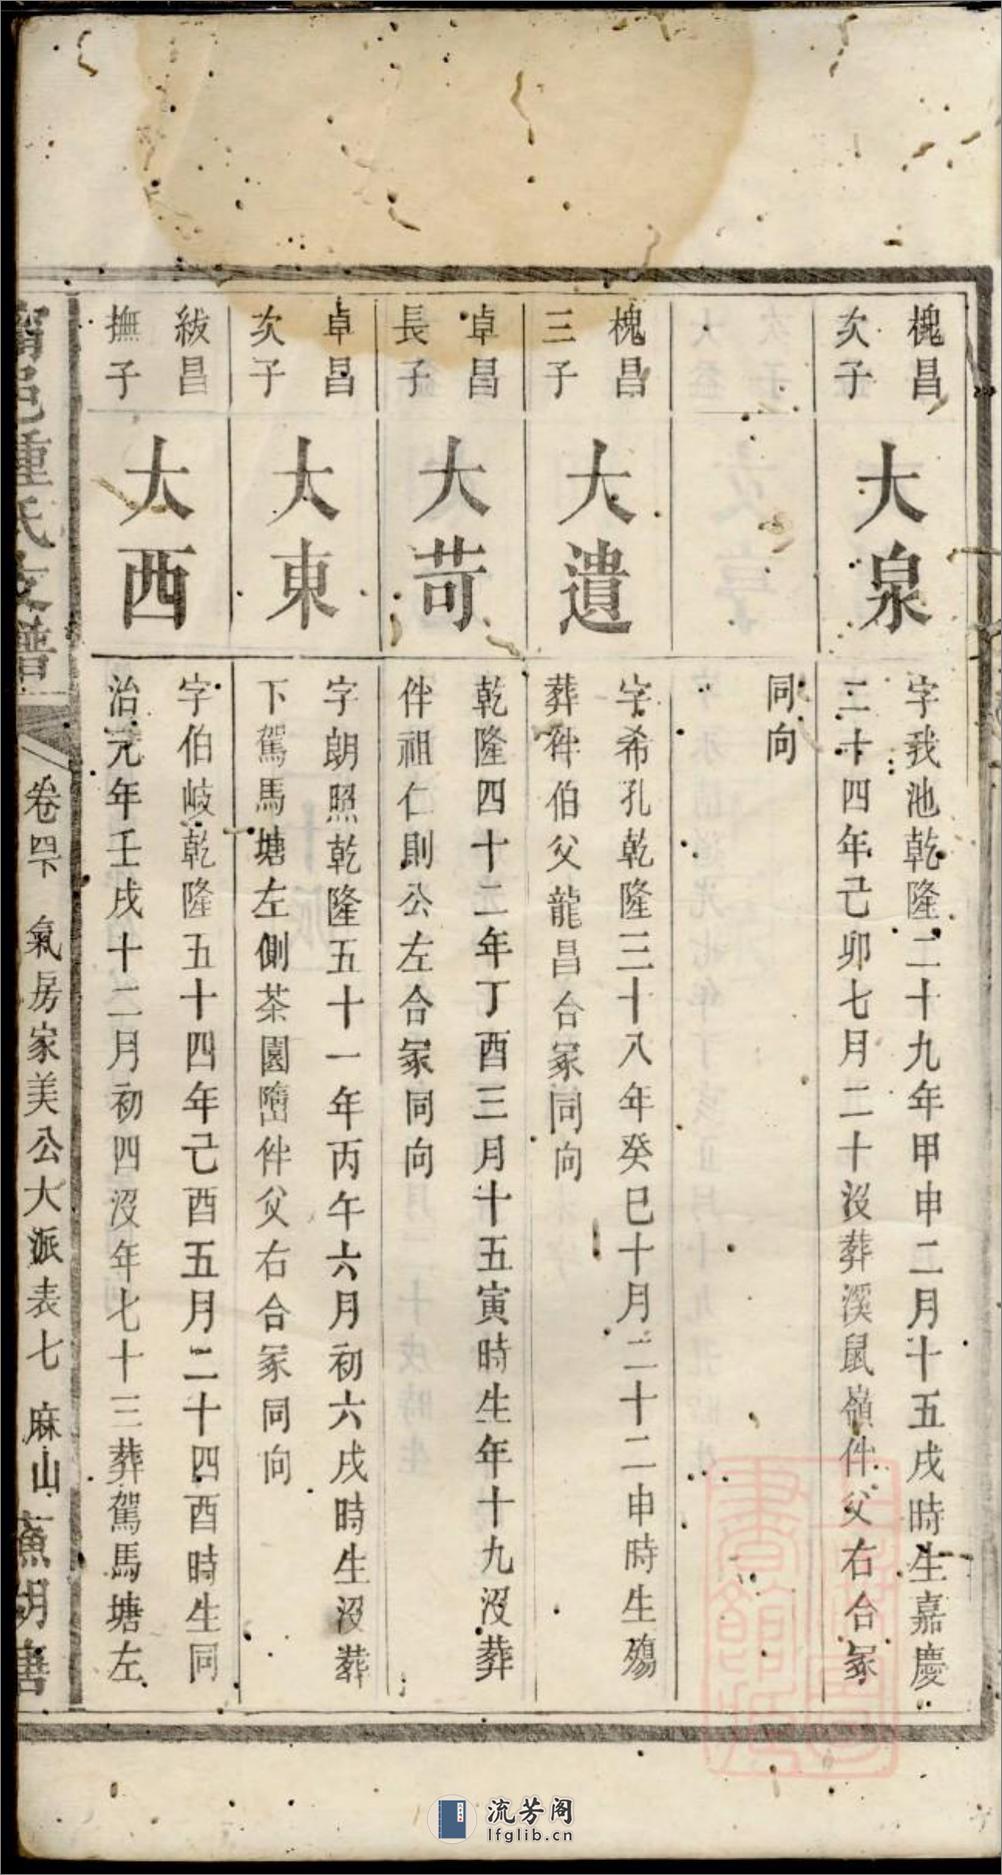 槐昌
次子
大泉
字我池乾隆二十九年甲申二月十五戌時生嘉慶
二十四年己卯七月二十沒葬溪鼠嶺伴父右合冢
同向
槐昌
三子
大遺
字希孔乾隆三十八年癸巳十月二十二申時生殤
葬伴伯父龍昌合冢同向
卓昌
長子
大苛
乾隆四十二年丁酉三月十五寅時生年十九沒葬
伴祖仁則公左合冢同向
卓昌
次子
大東
字朗照乾隆五十一年丙午六月初六戌時生沒葬
下駕馬塘左側茶園伴父右合冢同向
紱昌
撫子
大西
字伯岐乾隆五十四年己酉五月二十四酉時生同
治元年壬戌十二月初四沒年七十三葬駕馬塘左
氏支譜
卷四下 氣房家美公大派表七 麻山
流芳阁
lfglib.cn